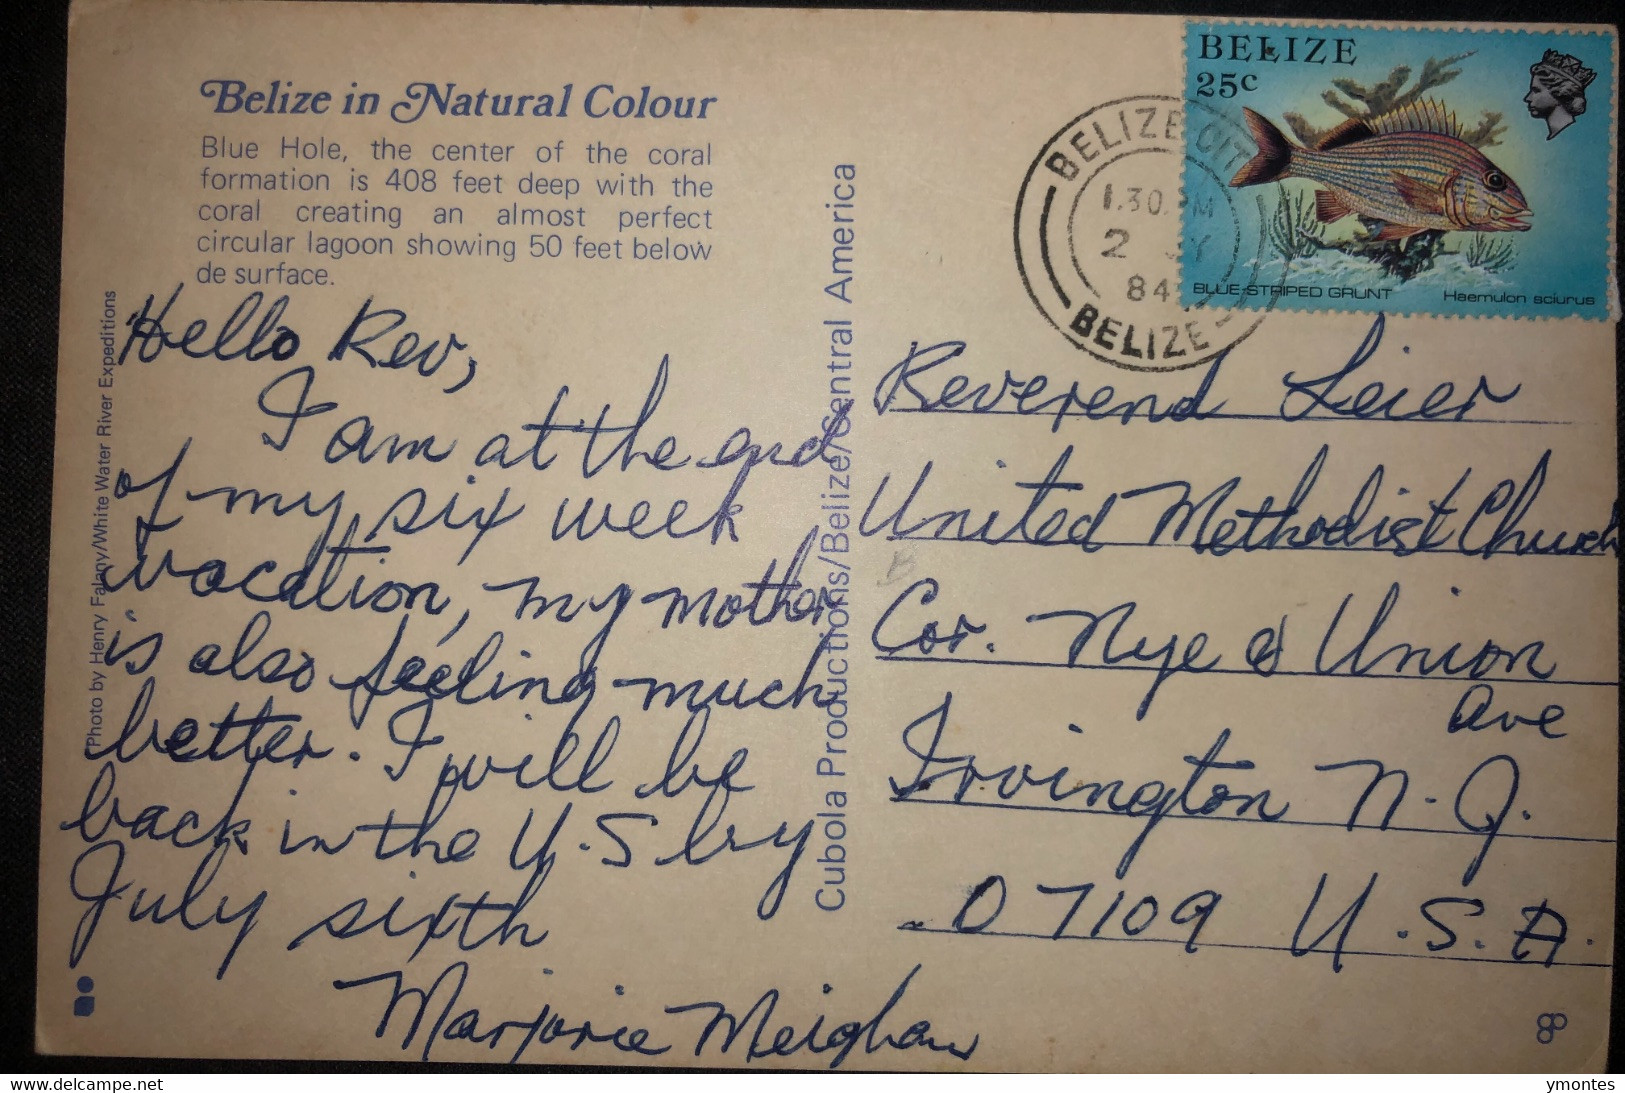 Belize in Natural Colour
Blue Hole, the center of the coral
formation is 408 feet deep with the
coral creating an almost perfect
circular lagoon showing 50 feet below
de surface.
Hello Rev,
I am at the end
of my six week
vacation, my mother
is also feeling much
better. I will be
back in the U.S by
July sixth
Marjorie Meighan
Photo by Henry Falany/White Water River Expeditions
Cubola Productions/Belize/Central America
BELIZE CIT
1.30 PM
2 Y
84
BELIZE
BELIZE
25c
BLUE-STRIPED GRUNT Haemulon sciurus
Reverend Leier
United Methodist Church
Cor. Nye & Union
Ave
Irvington N.J.
07109 U.S.A.
delcampe.net
ymontes